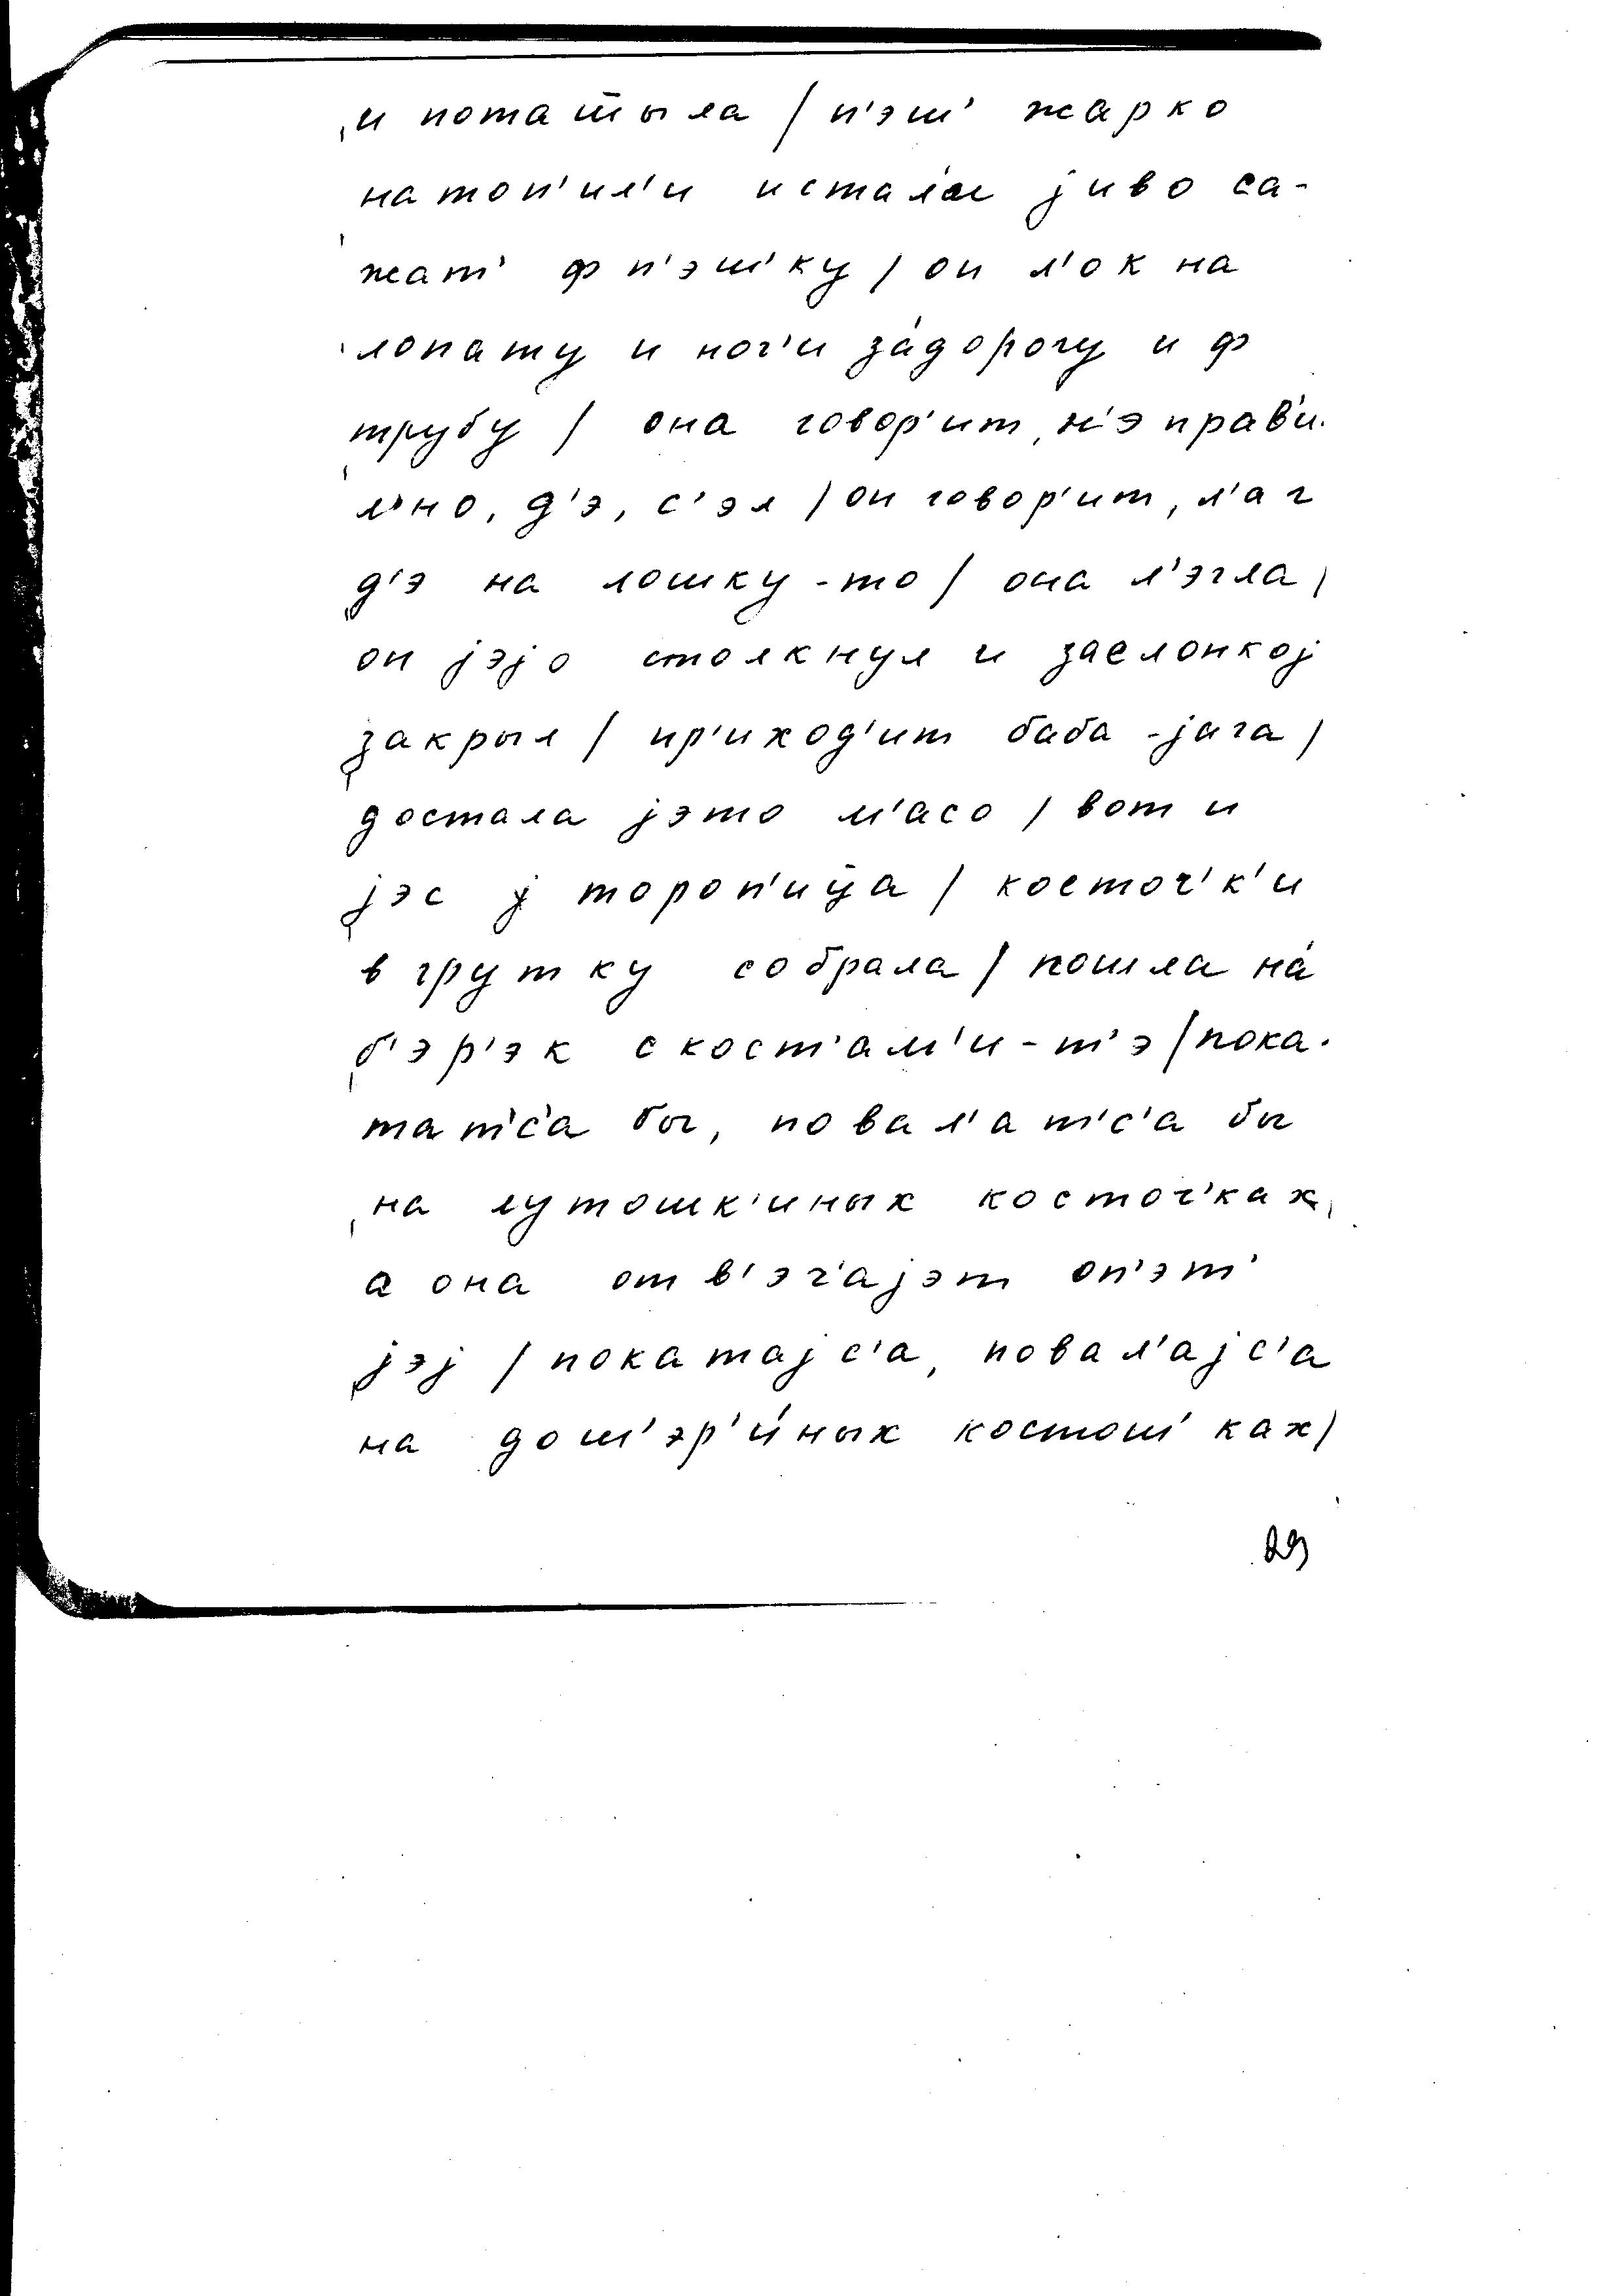 и потат̄ыла / п'эш' жарко
натоп'ил'и и стал'и jиво са-
жат' ф п'эш'ку / он л'ок на
лопату и ног'и за́дорогу и ф
трубу / она говор'ит, н'э прав'и-
л'но, д'э, с'эл / он говор'ит, л'аг
д'э на лошку-то / она л'эгла /
он jэjо столкнул и заслонкоj
закрыл / пр'иход'ит баба-jага /
достала jэто м'асо / вот и
jэс j тороп'иц̄а / косточ'к'и
в грутку собрала / пошла на́
б'эр'эк с кост'ам'и-т'э / пока-
тат'с'а бы, повал'ат'с'а бы
на лутошк'иных косточ'ках,
а она отв'эч'аjэт оп'эт'
jэj / покатаjс'а, повал'аjс'а
на дош'эр'и́ных костош'ках /
29